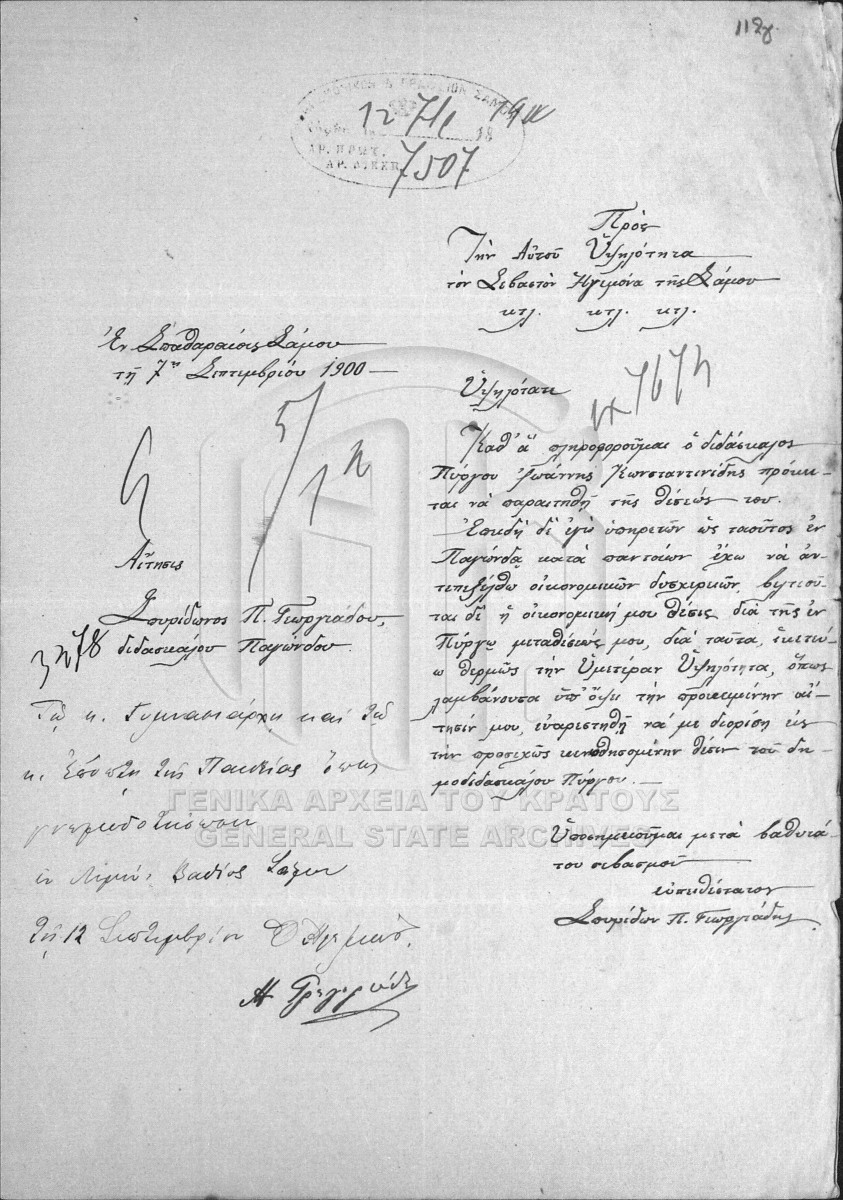 112γ
12 7/β
ΑΡ. ΠΡΩΤ. 7507
ΑΡ. ΔΙΕΚΠ.
Πρὸς
Τὴν Αὐτοῦ Ὑψηλότητα
τὸν Σεβαστὸν Ἡγεμόνα τῆς Σάμου
κτλ. κτλ. κτλ.
Ἐν Σπαθαραίοις Σάμου
τῇ 7ῃ Σεπτεμβρίου 1900 —
Αἴτησις
Σπυρίδωνος Π. Γεωργιάδου,
διδασκάλου Παγώνδου.
Ὑψηλότατε
Καθ' ἃ πληροφοροῦμαι ὁ διδάσκαλος
Πύργου Ἰωάννης Κωνσταντινίδης πρόκει-
ται νὰ παραιτηθῇ τῆς θέσεώς του.
Ἐπειδὴ δὲ ἐγὼ ὑπηρετῶν ὡς τοιοῦτος ἐν
Παγώνδᾳ κατὰ παντοίων ἔχω νὰ ἀν-
τεπεξέλθω οἰκονομικῶν δυσχερειῶν, βελτιοῦ-
ται δὲ ἡ οἰκονομική μου θέσις διὰ τῆς ἐν
Πύργῳ μεταθέσεώς μου, διὰ ταῦτα, ἱκετεύ-
ω θερμῶς τὴν Ὑμετέραν Ὑψηλότητα, ὅπως
λαμβάνουσα ὑπ' ὄψει τὴν προκειμένην αἴ-
τησίν μου, εὐαρεστηθῇ νὰ με διορίσῃ εἰς
τὴν προσεχῶς κενωθησομένην θέσιν τοῦ δη-
μοδιδασκάλου Πύργου. —
Ὑποσημειοῦμαι μετὰ βαθυτά-
του σεβασμοῦ
εὐπειθέστατος
Σπυρίδων Π. Γεωργιάδης
Τῷ κ. Γυμνασιάρχῃ καὶ τῷ
κ. Ἐπόπτῃ τῆς Παιδείας ὅπως
γνωμοδοτήσωσι
ἐν Λιμένι Βαθέος Σάμου
τῇ 12 Σεπτεμβρίου Ὁ Ἡγεμών
Μ Γρηγοριάδης
ΓΕΝΙΚΑ ΑΡΧΕΙΑ ΤΟΥ ΚΡΑΤΟΥΣ
GENERAL STATE ARCHIVES